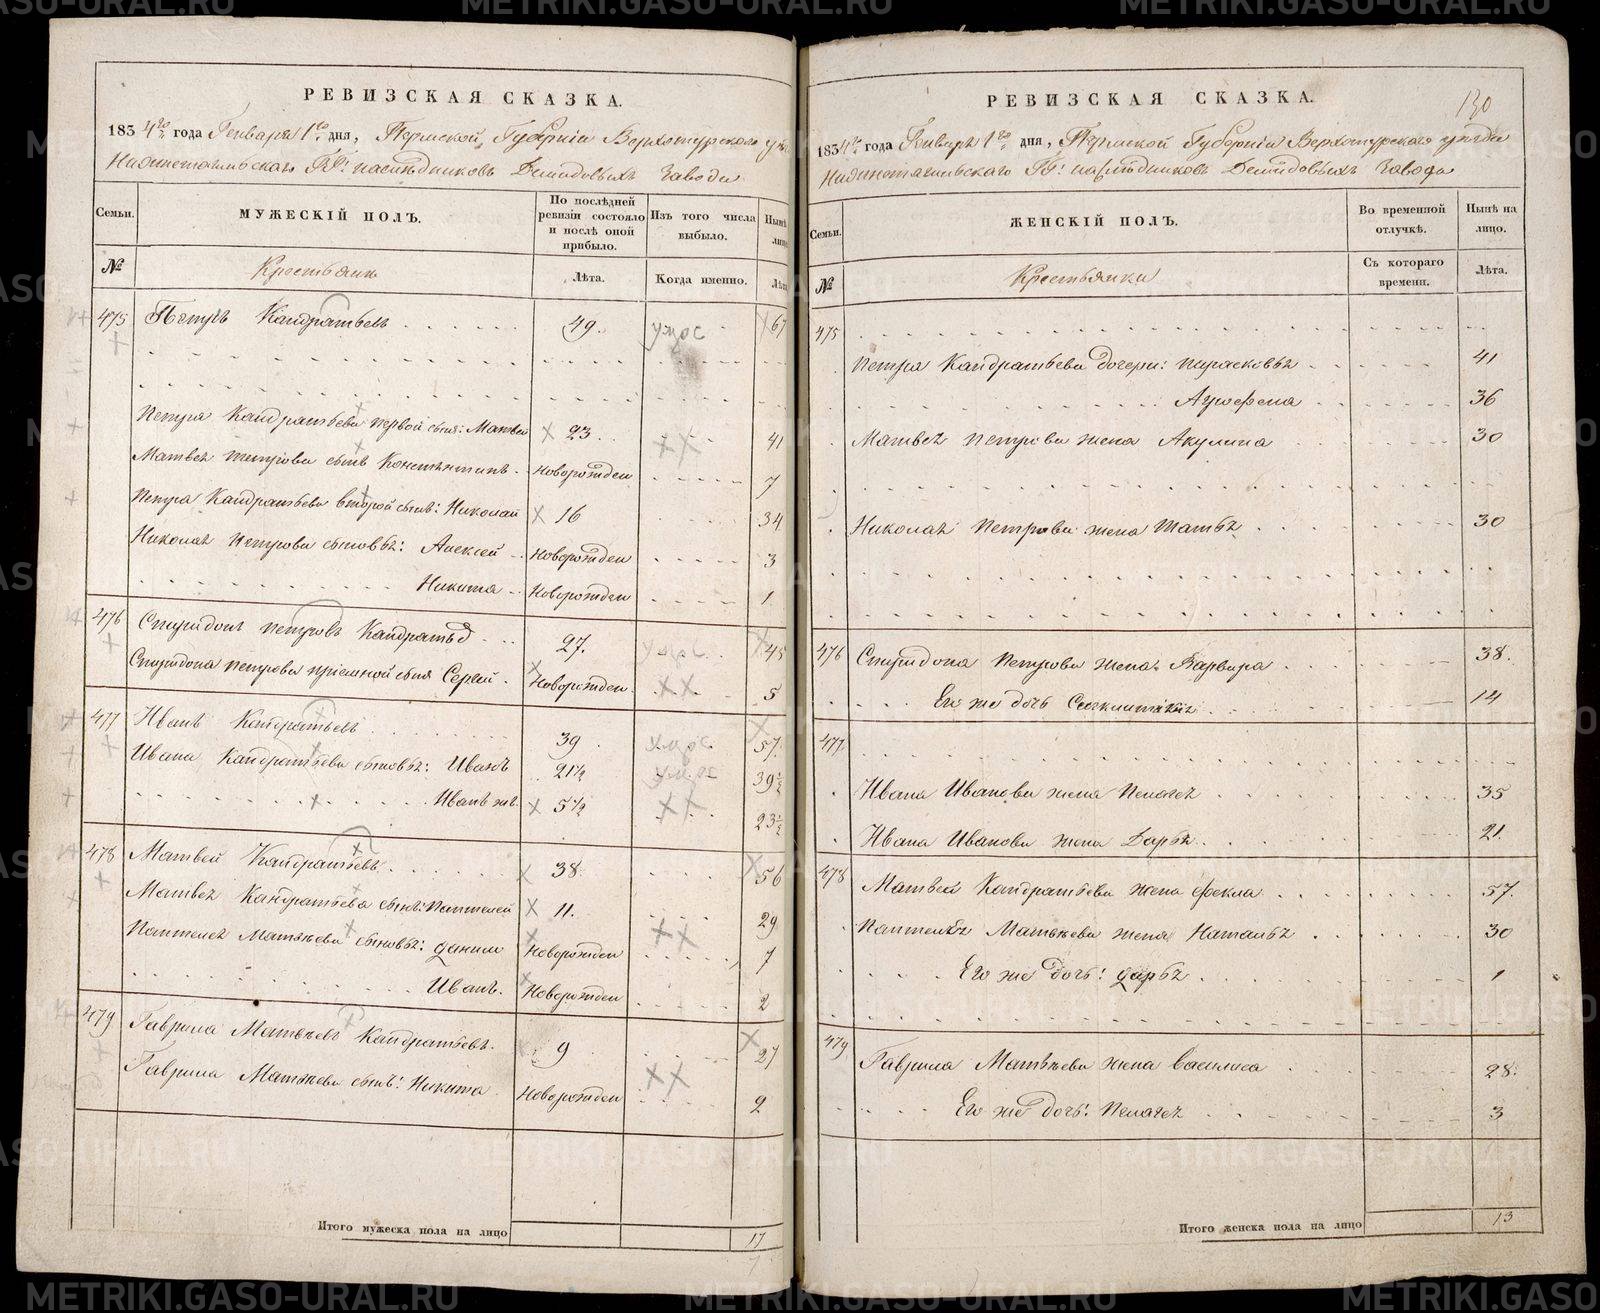 РЕВИЗСКАЯ СКАЗКА.
1834го года Генваря 1го дня, Пермской Губерніи Верхотурскаго
Нижнетагильскаго ГГ: наследниковъ Демидовыхъ Завода
Семьи.
МУЖЕСКІЙ ПОЛЪ.
По послѣдней ревизіи состояло и послѣ оной прибыло.
Изъ того числа выбыло.
Нынѣ
№
Крестьянъ
Лѣта.
Когда именно.
Лѣта
475 Петръ Кандратьевъ 49. умре 67
Петра Кандратьева первой сынъ: Матвей 23 41
Матвея петрова сынъ Констянтинъ Новорожден 7
Петра Кандратьева второй сынъ: Николай 16 34
Николая петрова сыновья: Алексей Новорожден 3
Никита Новорожден 1
476 Спиридонъ петровъ Кандратьев 27. умре 45
Спиридона петрова приемной сынъ Сергей Новорожден 5
477 Иванъ Кандратьевъ 39 умре 57
Ивана Кандратьева сыновья: Иванъ 21½ умре 39½
Иванъ же 5½ 23½
478 Матвей Кандратьевъ 38 56
Матвея Кандратьева сынъ: Пантелей 11. 29
Пантелея Матвеева сыновья: данило Новорожден 7
Иванъ. Новорожден 2
479 Гаврила Матвеевъ Кандратьевъ. 9 27
Гаврила Матвеева сынъ: Никита Новорожден 2
Итого мужеска пола на лицо 17
130
РЕВИЗСКАЯ СКАЗКА.
1834го года Генваря 1го дня, Пермской Губерніи Верхотурскаго уезда
Нижнетагильскаго ГГ: наследниковъ Демидовыхъ Завода
Семьи.
ЖЕНСКІЙ ПОЛЪ.
Во временной отлучкѣ.
Нынѣ на лицо.
№
Крестьянки
Съ котораго времени.
Лѣта.
475
Петра Кандратьева дочери: парасковья 41
Агрофена 36
Матвея петрова жена Акулина 30
Николая петрова жена Татья 30
476 Спиридона Петрова жена Варвара 38.
Его же дочь 14
477
Ивана Иванова жена Пелагея 35
Ивана Иванова жена Дарья 21.
478 Матвея Кандратьева жена фекла 57.
Пантелея Матвеева жена Наталья 30
Его же дочь: дарья 1
479 Гаврила Матвеева жена василиса 28.
Его же дочь: Пелагея 3
Итого женска пола на лицо 13
METRIKI.GASO-URAL.RU